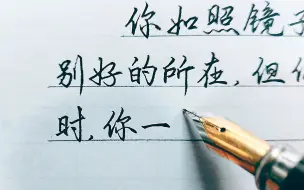 你如照镜子
别好的所在,但你
时,你一